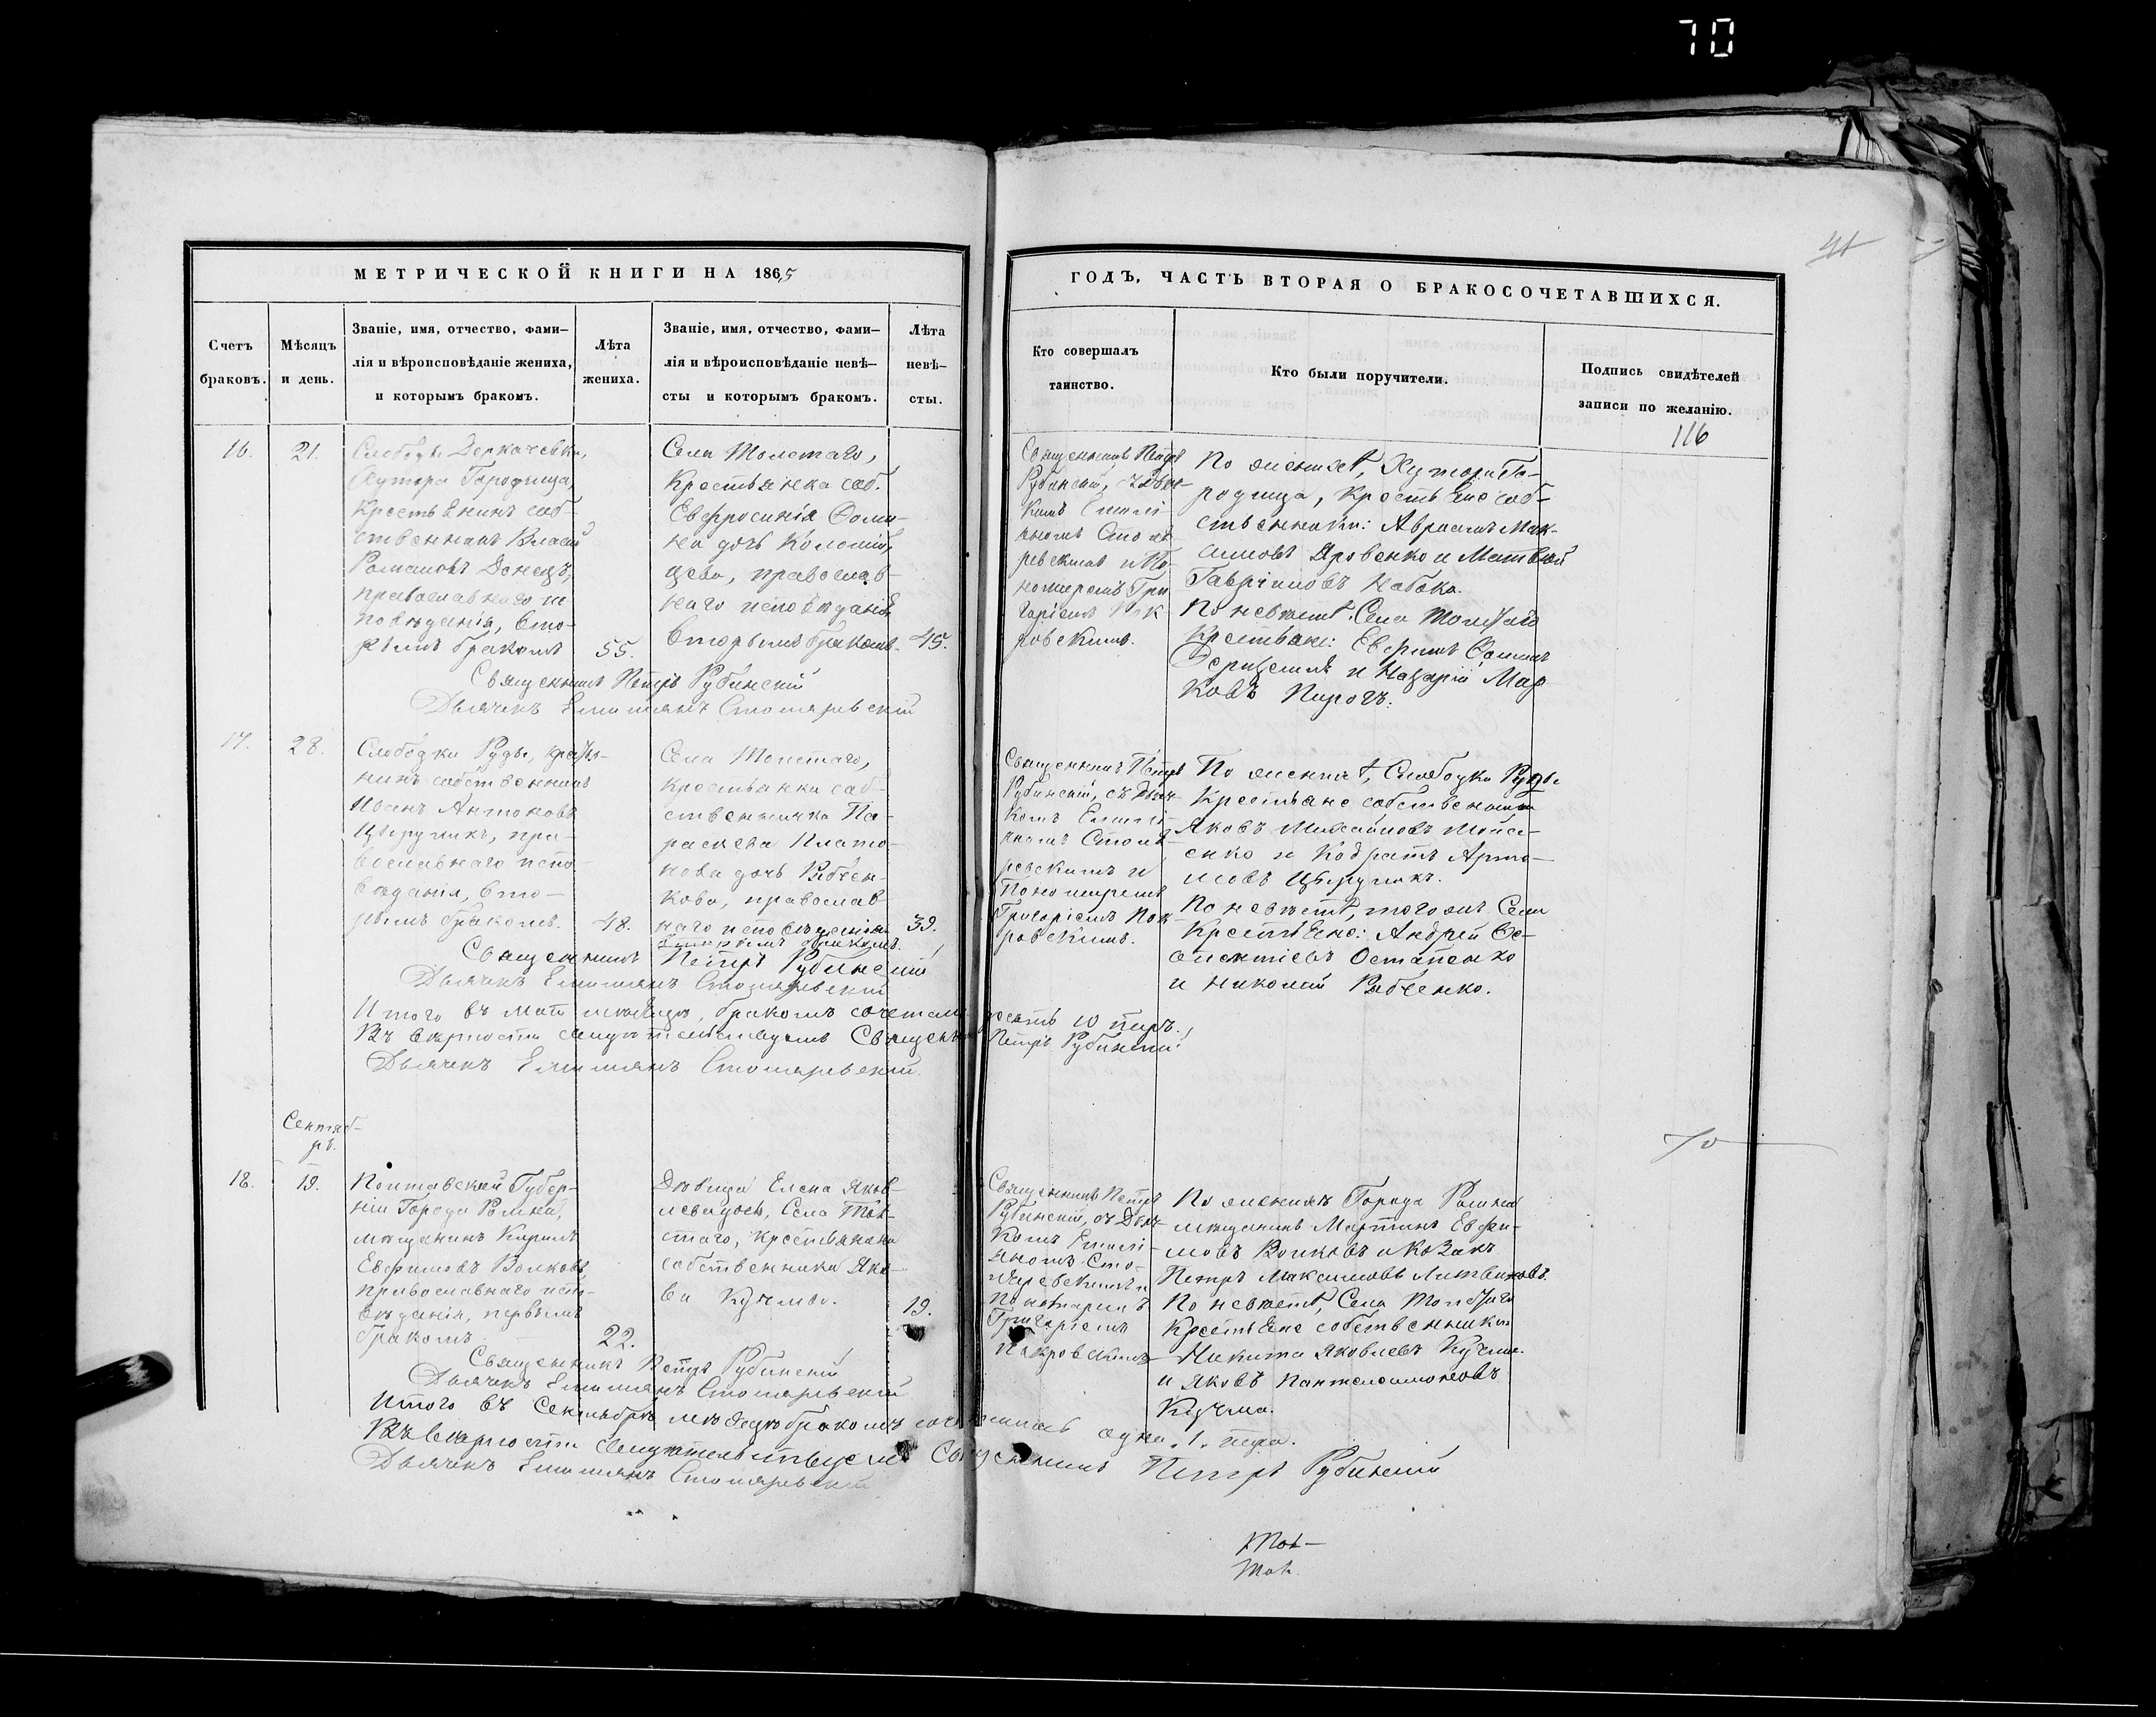 70
МЕТРИЧЕСКОЙ КНИГИ НА 1865
ГОДЪ, ЧАСТЬ ВТОРАЯ О БРАКОСОЧЕТАВШИХСЯ.
Счетъ
браковъ.
Мѣсяцъ
и день.
Званіе, имя, отчество, фами-
лія и вѣроисповѣданіе жениха,
и которымъ бракомъ.
Лѣта
жениха.
Званіе, имя, отчество, фами-
лія и вѣроисповѣданіе невѣ-
сты и которымъ бракомъ.
Лѣта
невѣ-
сты.
Кто совершалъ
таинство.
Кто были поручители.
Подпись свидѣтелей
записи по желанію.
116
16.
21.
Слободы Деркачевки,
Хутора Городища,
Крестьянинъ соб-
ственникъ Власій
Романовъ Донецъ,
православнаго ис
повѣданія, вто-
рымъ бракомъ
55.
Села Толстаго,
Крестьянка соб.
Евфросинія Фоми-
на дочь
православ-
наго исповѣданія
вторымъ бракомъ.
45.
Священникъ Петръ
Рубинскій, съ дьяч-
комъ Емилі
аномъ Столя
ревскимъ и По
номаремъ Гри
горіемъ Пок
ровскимъ.
По женихѣ, Хутора Го-
родища, Крестьяне соб-
ственники: Авраамъ Мак-
симовъ Яровенко и Матвѣй
Гавріиловъ Набока.
По невѣстѣ, Села Толстаго
Крестьяне: Ефимъ Фоминъ
и Назарій Мар
ковъ Пирогъ.
Священникъ Петръ Рубинскій
Дьячекъ Емиліянъ Столяревскій
17.
28.
Слободки Руды, крестья-
нинъ собственникъ
Иванъ Антоновъ
Цыруликъ, пра-
вославнаго испо-
вѣданія, вто-
рымъ бракомъ.
48.
Села Толстаго,
крестьянка соб-
ственничка Па-
раскева Плато-
нова дочь Рябчен-
кова, православ-
наго исповѣданія
вторымъ бракомъ.
39.
Священникъ Петръ
Рубинскій, съ Дьяч-
комъ Емилі-
аномъ Столя
ревскимъ и
Пономаремъ
Григоріемъ Пок
ровскимъ.
По женихѣ, Слободки Руды
Крестьяне собственники
Яковъ Михайловъ Мойсе-
енко и Кодратъ Арте-
мовъ Цыруликъ.
По невѣстѣ, того жъ Села
Крестьяне: Андрей Фе-
октистовъ Остапенко
и Николай Рябченко.
Священникъ Петръ Рубинскій
Дьячекъ Емиліянъ Столяревскій
Итого въ маѣ мѣсяцѣ, бракомъ сочетались десять 10 паръ.
Въ вѣрности свидѣтельствуемъ Священникъ Петръ Рубинскій
Дьячекъ Емиліянъ Столяревскій.
Сентяб-
рь.
70
18.
19.
Полтавской Губер-
ніи Города Ромна,
мѣщанинъ Кирилъ
Евфимовъ Волковъ,
православнаго испо-
вѣданія, первымъ
бракомъ
22.
Дѣвица Елена Яков-
лева дочь, Села Тол-
стаго, крестьянина
собственника Яко-
ва Кузьмы.
19.
Священникъ Петръ
Рубинскій, съ Дьяч-
комъ Емилі-
яномъ Сто-
ляревскимъ и
Пономаремъ
Григоріемъ
Покровскимъ
По женихѣ Города Ромна
мѣщанинъ Мартинъ Евфи-
мовъ Волковъ и козакъ
Петръ Максимовъ Литвиновъ.
По невѣстѣ, Села Толстаго
Крестьяне собственники
Никита Яковлевъ Кузьма
и Яковъ Пантелеимоновъ
Кузьма.
Священникъ Петръ Рубинскій
Дьячекъ Емиліянъ Столяревскій
Итого въ Сентябрѣ мѣсяцѣ бракомъ сочеталась одна "1" пара.
Въ вѣрности свидѣтельствуемъ Священникъ Петръ Рубинскій
Дьячекъ Емиліянъ Столяревскій